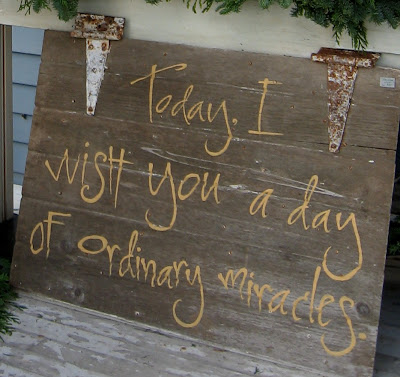 Today, I
wish you a day
of ordinary miracles.